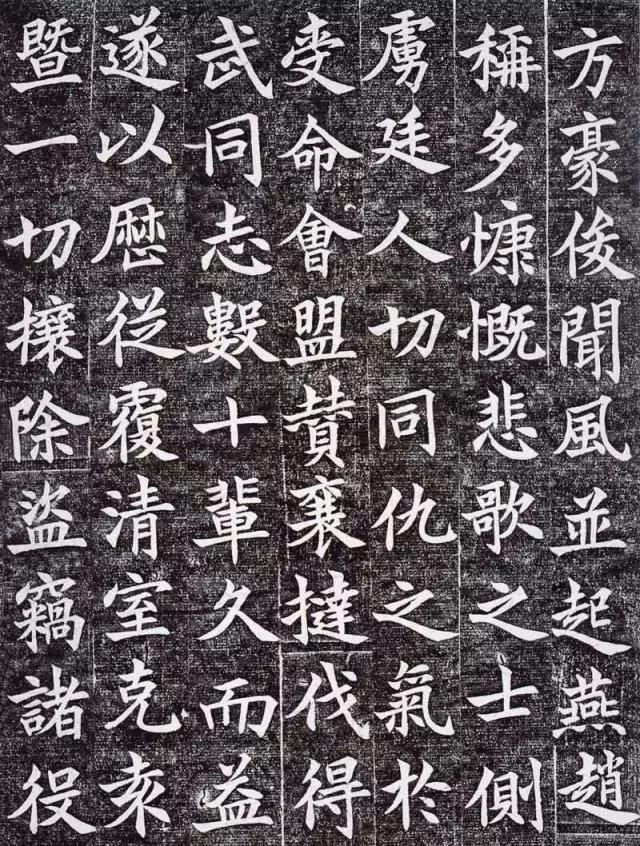 方豪俊聞風並起燕趙
稱多慷慨悲歌之士側
虜廷人切同仇之氣於
受命會盟贊襄撻伐得
武同志數十輩久而益
遂以歷從覆清室克亥
暨一切攘除盜竊諸役